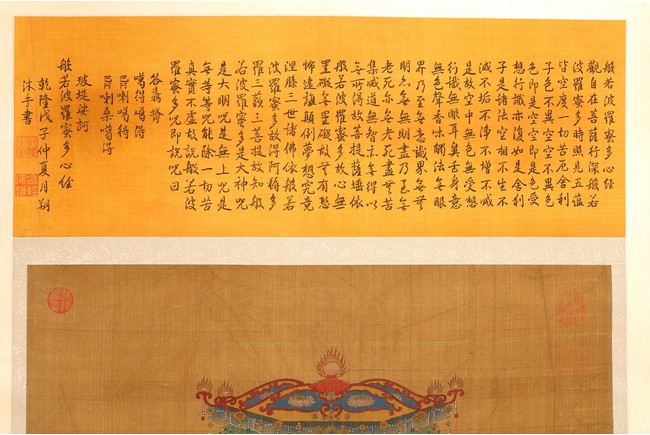 般若波羅蜜多心經
觀自在菩薩行深般若
波羅蜜多時照見五蘊
皆空度一切苦厄舍利
子色不異空空不異色
色即是空空即是色受
想行識亦復如是舍利
子是諸法空相不生不
滅不垢不淨不增不減
是故空中無色無受想
行識無眼耳鼻舌身意
無色聲香味觸法無眼
界乃至無意識界無無
明亦無無明盡乃至無
老死亦無老死盡無苦
集滅道無智亦無得以
無所得故菩提薩埵依
般若波羅蜜多故心無
罣礙無罣礙故無有恐
怖遠離顛倒夢想究竟
涅槃三世諸佛依般若
波羅蜜多故得阿耨多
羅三藐三菩提故知般
若波羅蜜多是大神咒
是大明咒是無上咒是
無等等咒能除一切苦
真實不虛故說般若波
羅蜜多咒即說咒曰
噶得噶得
巴喇噶得
巴喇桑噶得
玻提娑訶
般若波羅蜜多心經
乾隆戊子仲夏月朔
沐手書